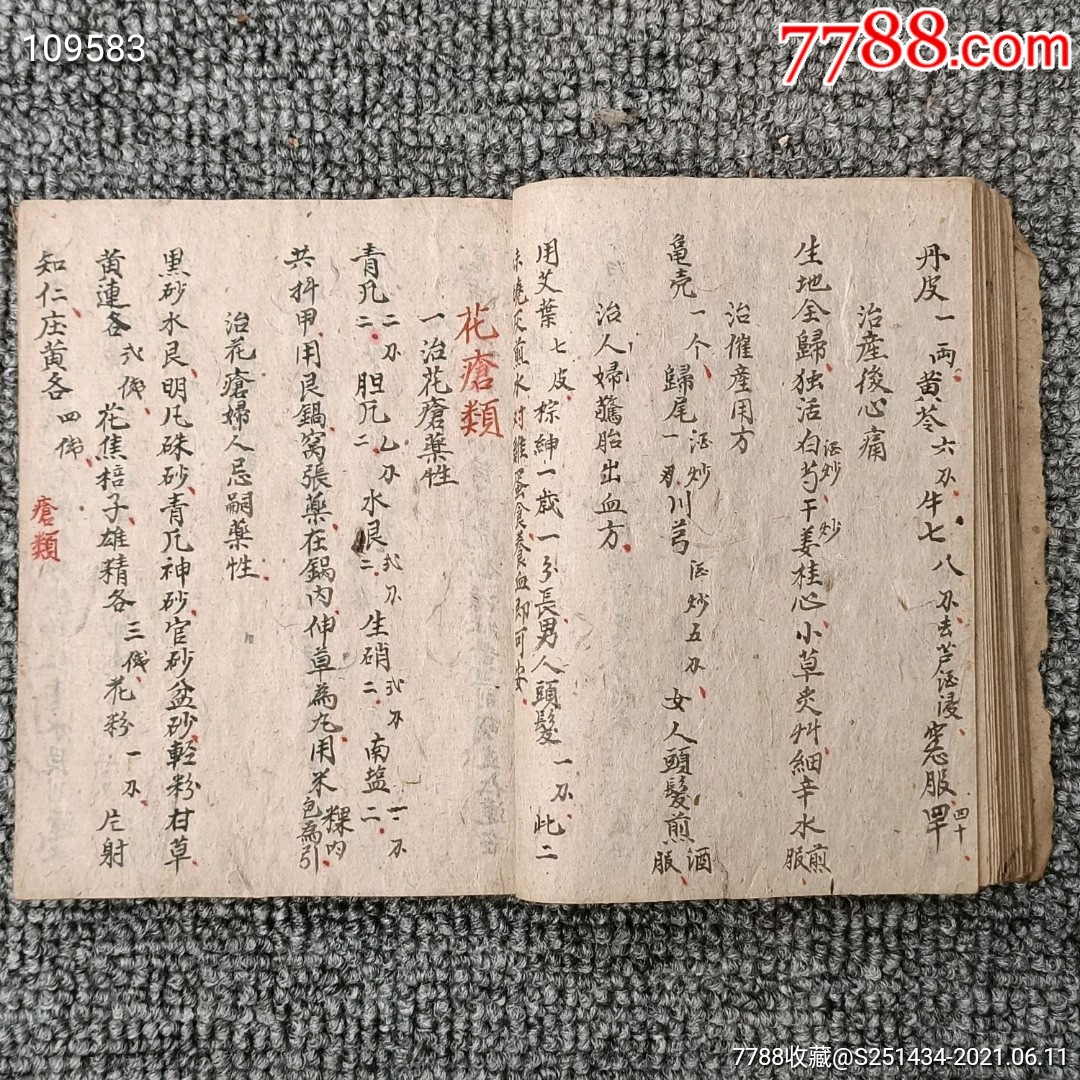 109583
7788.com
丹皮一両黄苓六刄牛七八刄去芦酒浸窓服四十
治産後心痛
生地全歸独活白芍酒炒干姜炒桂心小草炙艸細辛水煎服
治催産用方
亀壳一个酒炒歸尾一川芎酒炒五刄女人頭髮煎酒服
治人婦驚胎出血方
用艾葉七皮棕紳一歲一分長男人頭髮一刄此二
味燒灰煎水対雞蛋食養血即可安
花瘡類
一治花瘡藥性
青凡二二刄胆凡二乙刄水艮二弍刄生硝二弍刄南盐二一刄
共抖甲用艮鍋窩張藥在鍋内伸草為丸用米粿内包為引
治花瘡婦人忌嗣藥性
黒砂水艮明凡硃砂青凡神砂官砂盆砂輕粉甘草
黄連各弍伐花焦棓子雄精各三伐花粉一刄片射
知仁庄黄各四伐
瘡類
7788收藏@S251434-2021.06.11